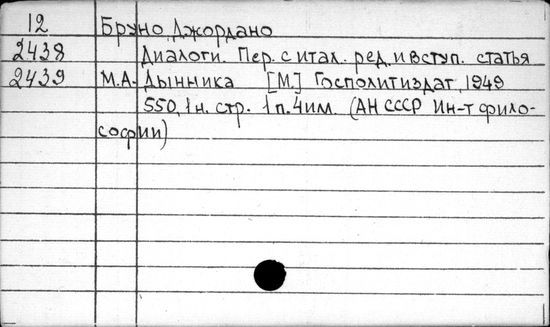 12 Бруно, Джордано
2438 Диалоги. Пер. с итал. ред. и вступ. статья
2439 М.А. Дынника [М.] Госполитиздат, 1949
550, 1 н. стр. 1 п. 4 им. (АН СССР Ин-т фило-
софии)